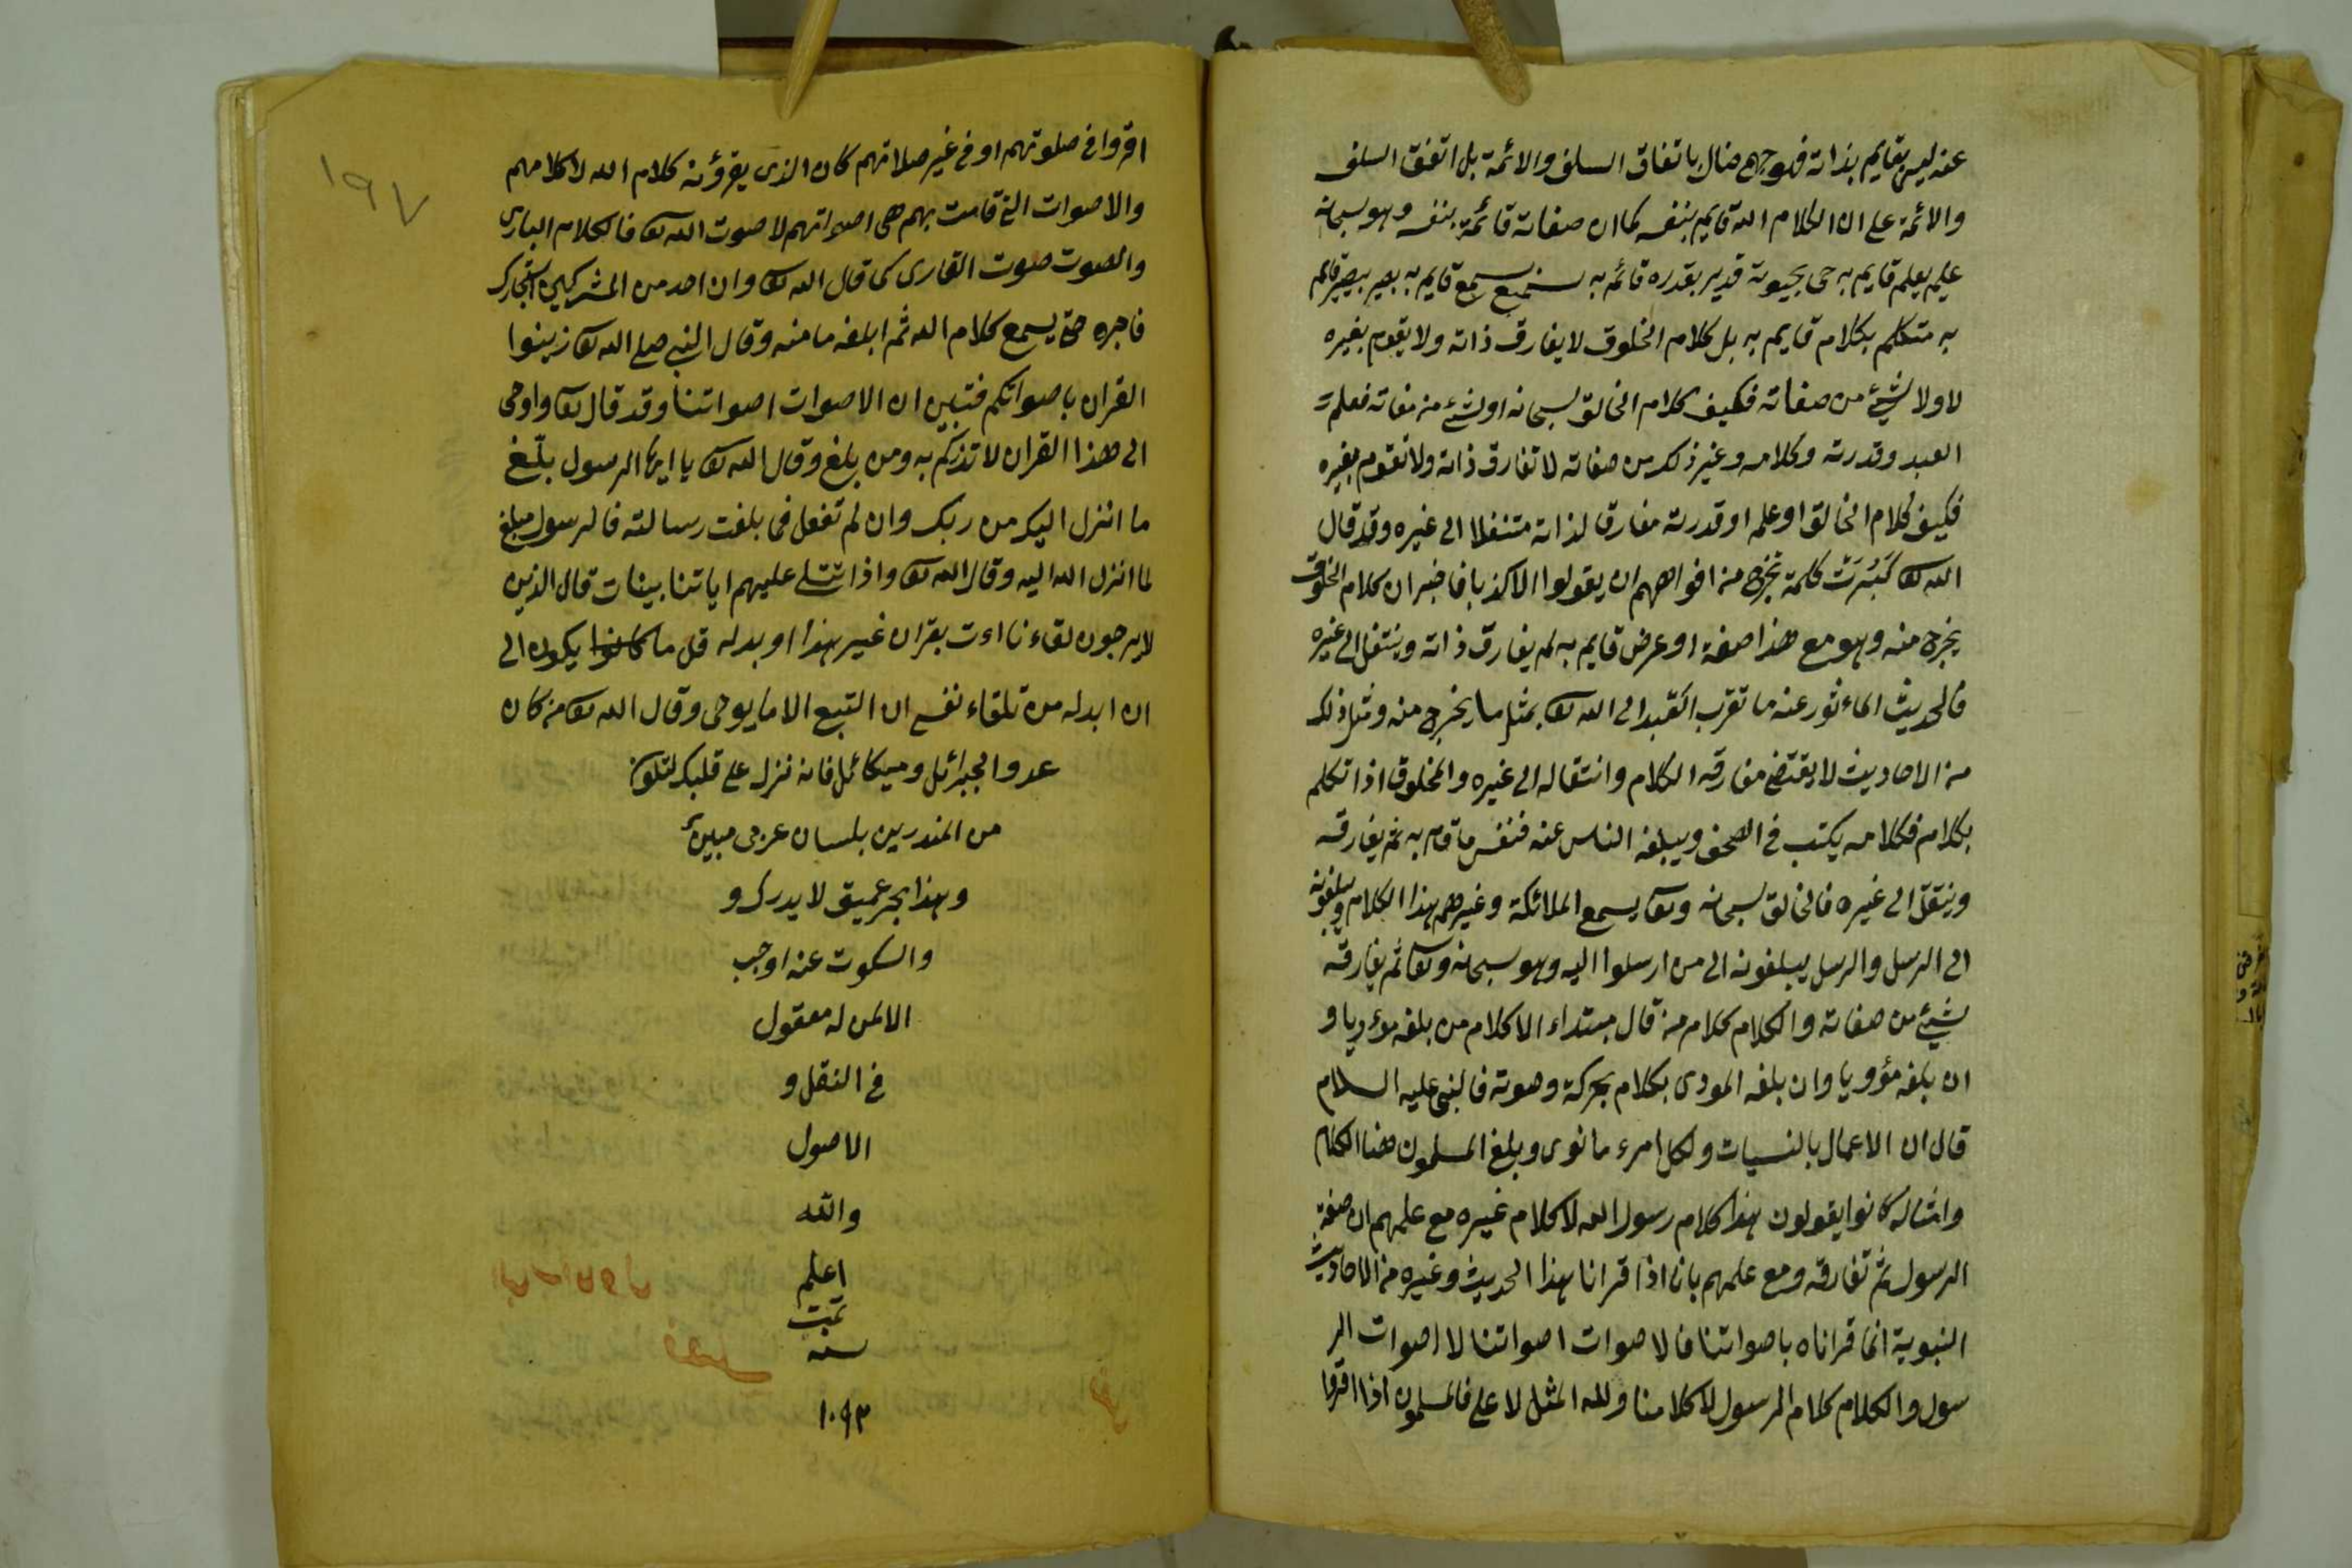 عنه ليس بقايم بذاته فهو جهمي ضال باتفاق السلف والائمة بل اتفق السلف
والائمة على ان الكلام الله قايم بنفسه كما ان صفاته قائمة بنفسه وهو سبحانه
عليم بعلم قايم به حي بحيوته قدير بقدره قائمه به سميع بسمع قايم به بصير ببصر قائم
به متكلم بكلام قايم به بل كلام المخلوق لا يفارق ذاته ولا يقوم بغيره
لا ولا شيئ من صفاته فكيف كلام الخالق سبحانه او شئ من صفاته فعلم
العبد وقدرته وكلامه وغير ذلك من صفاته لا تفارق ذاته ولا تقوم بغيره
فكيف كلام الخالق او علمه او قدرته مفارقا لذاته متنقلا الى غيره وقد قال
الله تعا كَبُرَتْ كلمة تخرج من افواههم ان يقولوا الا كذبا فاخبر ان كلام المخلوق
يخرج منه وهو مع هذا صفة او عرض قايم به لم يفارق ذاته وينتقل الى غيره
فالحديث الماءثور عنه ما تقرب العبد الى الله تعا بمثل ما يخرج منه ومثل ذلك
من الاحاديث لا يقتضي مفارقه الكلام وانتقاله الى غيره والمخلوق اذا تكلم
بكلام فكلامه يكتب في الصحف ويبلغه الناس عنه فنفس ما قام به لم يفارقه
وينتقل الى غيره فالخالق سبحانه وتعا يسمع الملائكة وغيرهم هذا الكلام ويبلغونه
الى الرسل والرسل يبلغونه الى من ارسلوا اليه وهو سبحانه وتعا لم يفارقه
شيئ من صفاته والكلام كلام من قال مبتداء الا كلام من بلغه موءديا و
ان بلغه مؤويا وان بلغه المودى بكلام بحركة وصوته فالنبي عليه السلام
قال ان الاعمال بالنسيات ولكل امرء ما نوى وبلغ المسلمون هذا الكلام
وامثاله كانوا يقولون هذا كلام رسول الله لا كلام غيره مع علمهم ان صفة
الرسول لم تفارقه ومع علمهم بانا اذا قرانا هذا الحديث وغيره من الاحاديث
النبوية انما قراناه باصواتنا فالاصوات اصواتنا لا اصوات الر
سول والكلام كلام الرسول لا كلامنا ولله المثل لا على فالمسلمون اذا اقروا
١٩٧
اقروا في صلوتهم او في غير صلاتهم كان الذى يقرؤنه كلام الله لا كلامهم
والاصوات التي قامت بهم هى اصواتهم لا صوت الله تعا فالكلام البارى
والصوت صوت القارى كما قال الله تعا وان احد من المشركين استجارك
فاجره حتى يسمع كلام الله ثم ابلغه مامنه وقال النبي صلى الله تعا زينوا
القران باصواتكم فتبين ان الاصوات اصواتنا وقد قال تعا واوحى
الى هذا القران لانذركم به ومن بلغ وقال الله تعا يا ايها الرسول بلّغ
ما انزل اليك من ربك وان لم تفعل فما بلغت رسالته فالرسول مبلغ
لما انزل الله اليه وقال الله تعا واذا تتلى عليهم اياتنا بينات قال الذين
لا يرجون لقاءنا اءت بقران غير هذا او بدله قل ما كانوا يكون لى
ان ابدله من تلقاء نفسى ان التبع الا ما يوحى وقال الله تعا من كان
عدوا لجبرائل وميكائل فانه نزله على قلبك لتكون
من المنذرين بلسان عربى مبين
وهذا بحر عميق لا يدرك و
والسكوت عنه اوجب
الا لمن له معقول
في النقل و
الاصول
والله
اعلم
تمت
سنه
١٠٩٣